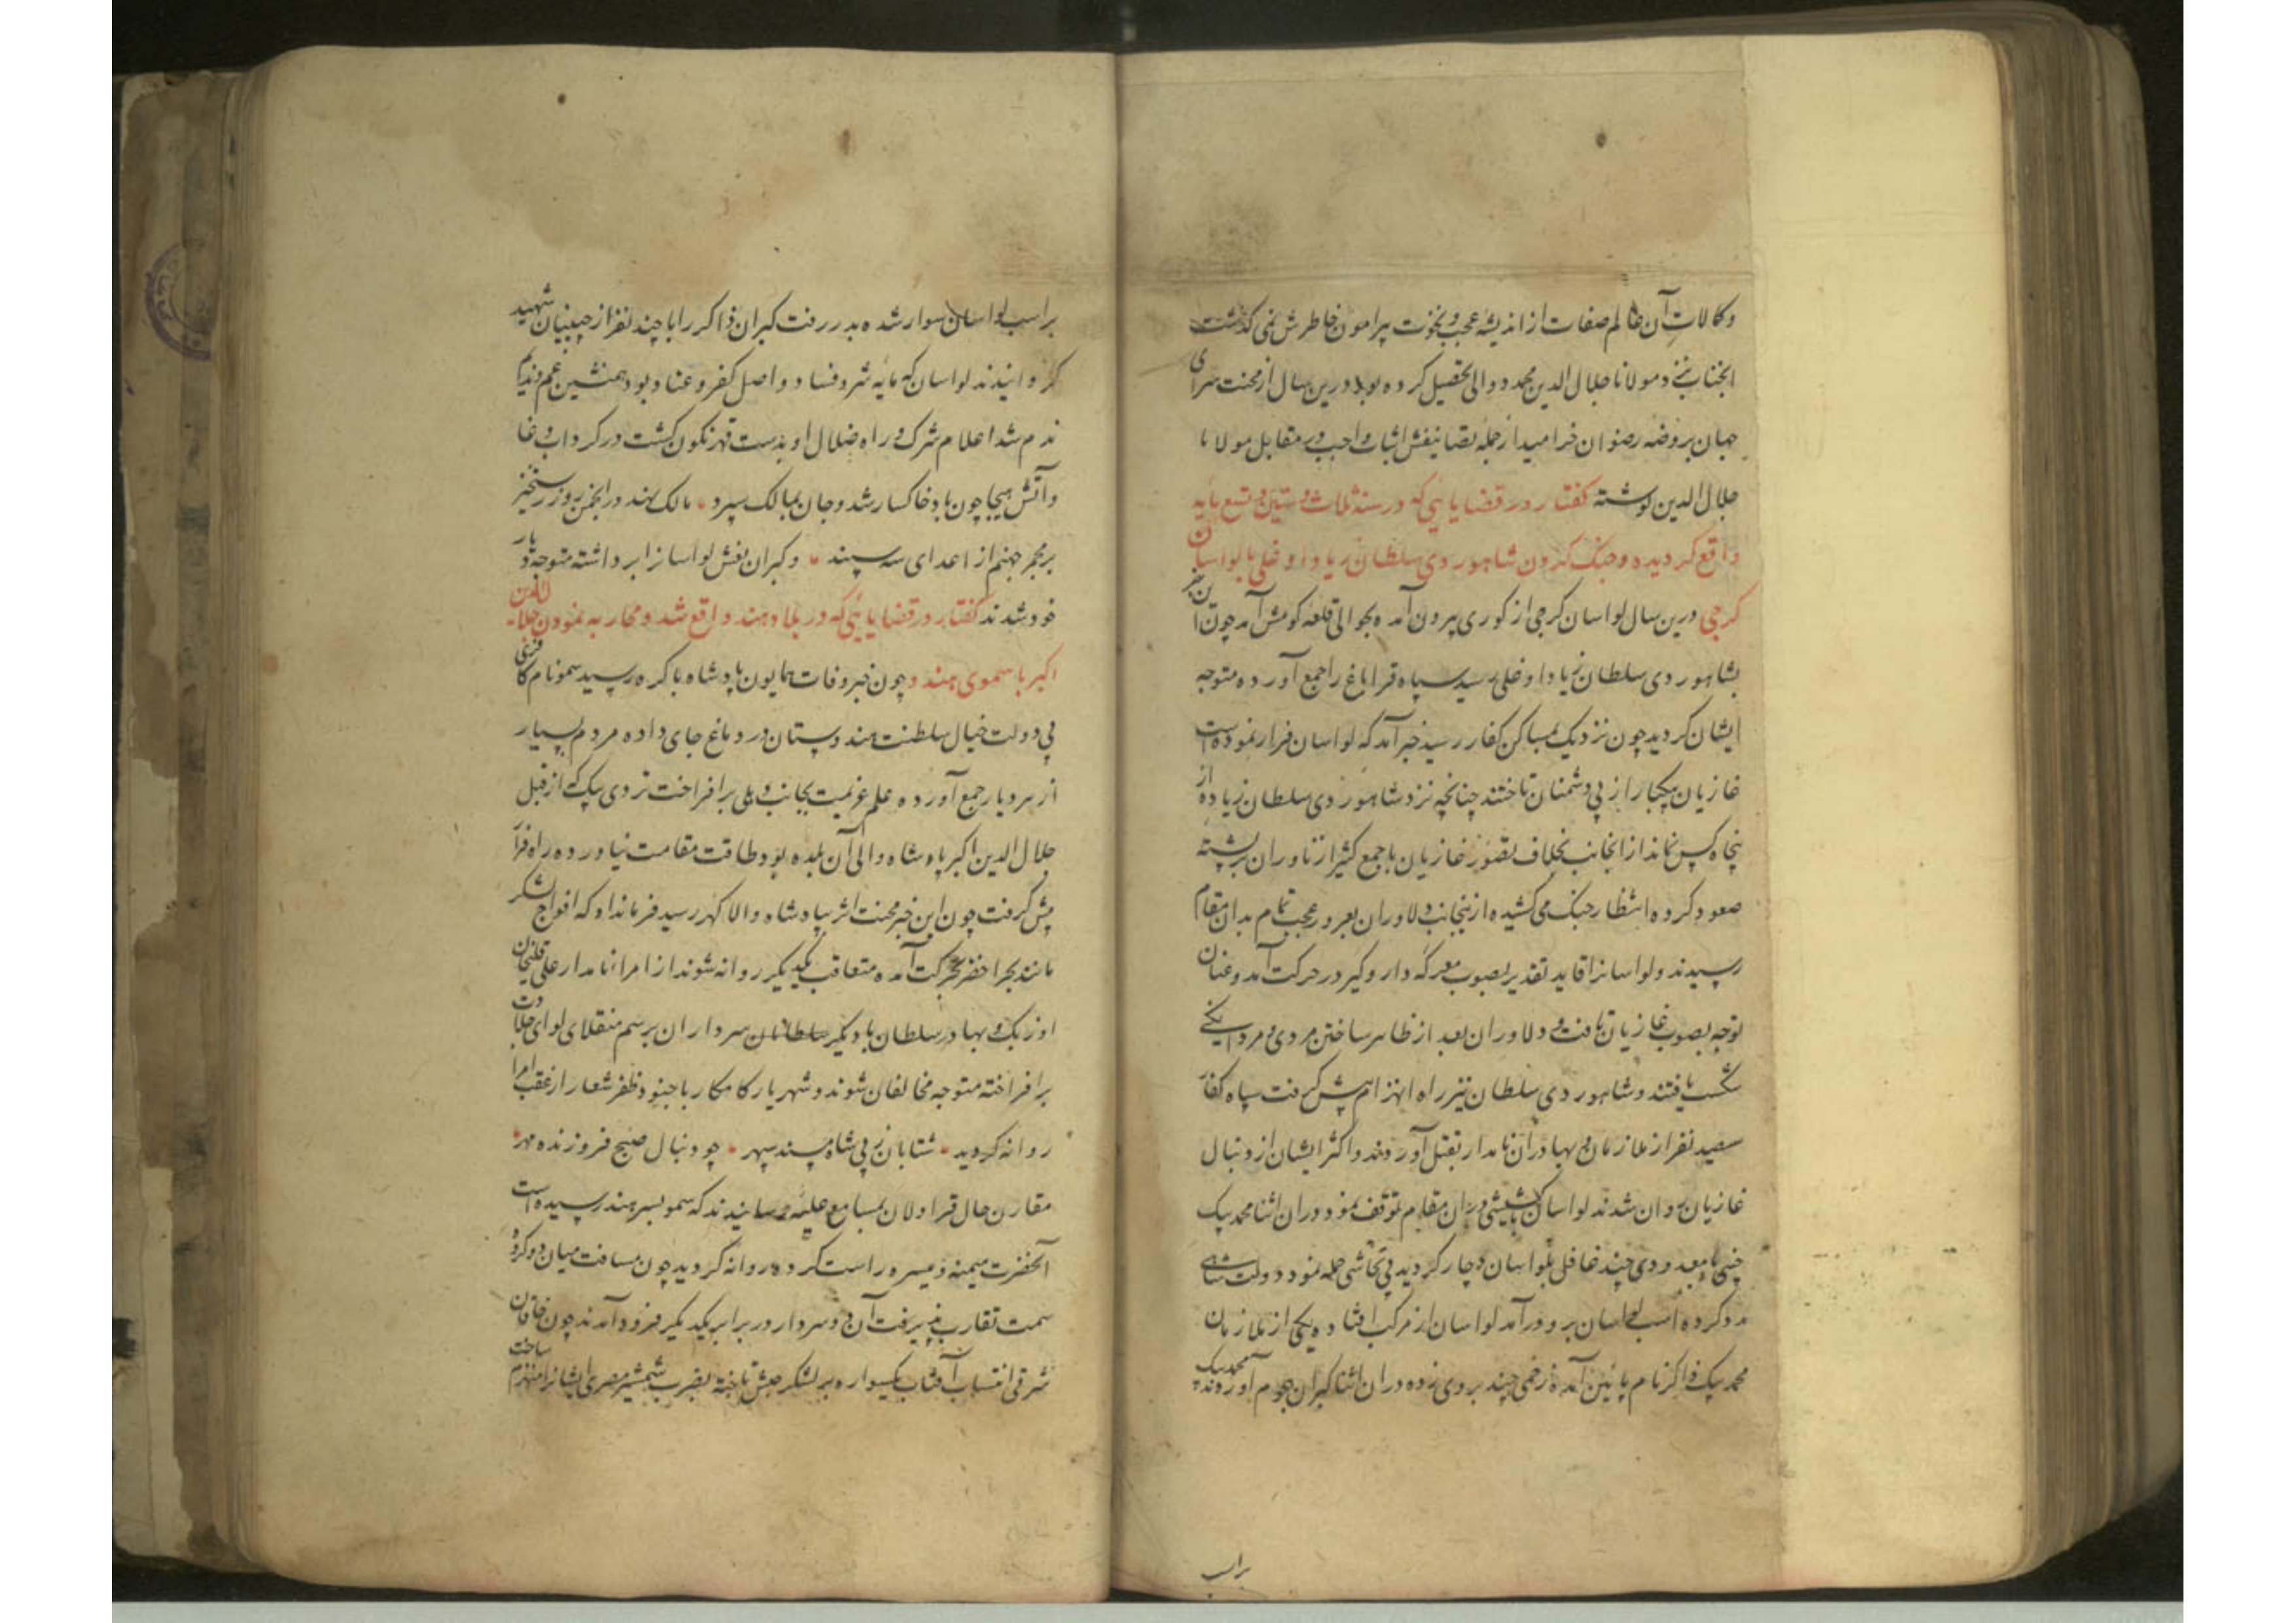 وکالات آن عالم صفات از اندیشه عجب و نخوت پیرامون خاطرش نمی کذشت
انجناب نزد مولانا جلال الدین محمد دوانی تحصیل کرده بود درین سال از محنت سرای
جهان بروضه رضوان خرامید از جمله تصانیفش اثبات واجب در مقابل مولانا
جلال الدین نوشته کفتار در قضایایی که در سنه ثلاث و ستین و تسع مایه
واقع کردیده و جنک کردن شاهوردی سلطان زیاد اوغلی با لواسان
کرجی درین سال لواسان کرجی از کوری بیرون آمده بحوالی قلعه کومش آمد چون این خبر
بشاهوردی سلطان زیاد اوغلی رسید سپاه قراباغ را جمع آورده متوجه
ایشان کردید چون نزدیک بمساکن کفار رسید خبر آمد که لواسان فرار نموده است
غازیان بیکبار از پی دشمنان تاختند چنانچه نزد شاهوردی سلطان زیاده از
پنجاه کس نماند از انجانب بخلاف تصور غازیان با جمع کثیر از ناوران بر پشته
صعود کرده انتظار جنک می کشید از ینجانب دلاوران بغرور عجب تمام بدان مقام
رسیدند و لواسانرا قاید تقدیر بصوب معرکه دار و کیر در حرکت آمد و عنان
توجه بصوب غازیان تافت و دلاوران بعد از ظاهر ساختن مردی و مردانکی
شکست یافتند و شاهوردی سلطان نیز راه انهزام پیش کرفت سپاه کفار
سیصد نفر از ملازمان و بهادران نامدار بقتل آوردند و اکثر ایشان از دنبال
غازیان روان شدند لواسان با کشیشی در آن مقام توقف نمود در ان اثنا محمد بیک
چنی با معدودی چند غافل بلواسان دچار کردید بی تحاشی حمله نمود دولت شاهی
مدد کرده اسب لواسان برو درآمد لواسان از مرکب افتاده یکی از ملازمان
محمد بیک ذاکر نام پائین آمده زخمی چند بر وی زده در ان اثنا کبران هجوم آوردند محمد بیک
براسب
براسب لواسان سوار شده بدر رفت کبران ذاکر را با چند نفر از چپنیان شهید
کردانیدند لواسان که مایه شر و فساد و اصل کفر و عناد بود همنشین غم و ندیم
ندم شد اعلام شرک و راه ضلال او بدست قهر نکون کشت در کرداب وغا
و آتش هیجا چون باد خاکسار شد و جان بمالک سپرد • مالک نهند در انجمن روز رستخیز
بر مجمر جهنم از اعدای سه سپند • و کبران نعش لواسانرا برداشته متوجه دیار
خود شدند کفتار در قضایایی که در بلاد هند واقع شد و محاربه نمودن جلال الدین
اکبر با سموی هندو چون خبر وفات همایون پادشاه باکره رسید سمو نام کافری
بی دولت خیال سلطنت هندوستان در دماغ جای داده مردم بسیار
از هر دیار جمع آورده علم عزیمت بجانب دهلی برافراخت تردی بیک که از قبل
جلال الدین اکبر پادشاه والی آن بلده بود طاقت مقامت نیاورده راه فرار
پیش کرفت چون این خبر محنت اثر بپادشاه والا کهر رسید فرمان داد که افواج لشکر
مانند بحر اخضر بحرکت آمده متعاقب یکدیکر روانه شوند از امرا نامدار علی قلیخان
اوزبک و بهادر سلطان با دیکر سلطانان سرداران برسم منقلای لوای جلادت
برافراخته متوجه مخالفان شوند و شهریار کامکار با جنود ظفر شعار از عقب امرا
روانه کردید • شتابان ز پی شاه پسند سپهر • چو دنبال صبح فروزنده مهر •
مقارن حال قراولان بمسامع علیه رسانیدند که سمو بسرهند رسیده است
آنحضرت میمنه و میسره راست کرده روانه کردید چون مسافت میان دو کروه
سمت تقارب پذیرفت آن دو سردار در برابر یکدیکر فرود آمدند چون خاقان
شرقی انتساب آفتاب یکسواره بر لشکر حبش تاخته بضرب شمشیر مصری ایشانرا منهزم ساخت